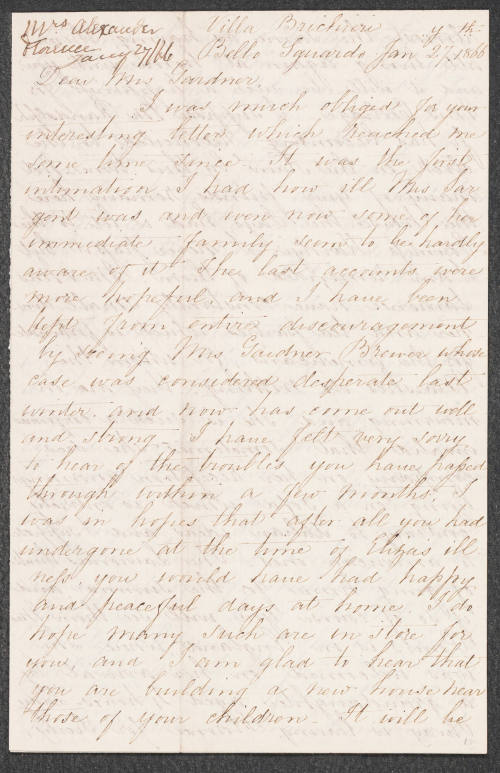 Mrs Alexander
Florence
Jany 27/66
Villa Brichieri
Bello Sguardo Jan 27th 1866
Dear Mrs Gardner,
I was much obliged for your
interesting letter which reached me
some time since. It was the first
intimation I had how ill Mrs Sar
gent was and even now some of her
immediate family seem to be hardly
aware of it. The last accounts were
more hopeful, and I have been
kept from entire discouragement
by seeing Mrs Gardner Brewer whose
case was considered desperate last
winter, and now has come out well
and strong. I have felt very sorry
to hear of the troubles you have passed
through within a few months. I
was in hopes that after all you had
undergone at the time of Elizas ill
ness, you would have had happy
and peaceful days at home. I do
hope many such are in store for
you, and I am glad to hear that
you are building a new house near
those of your children. It will be